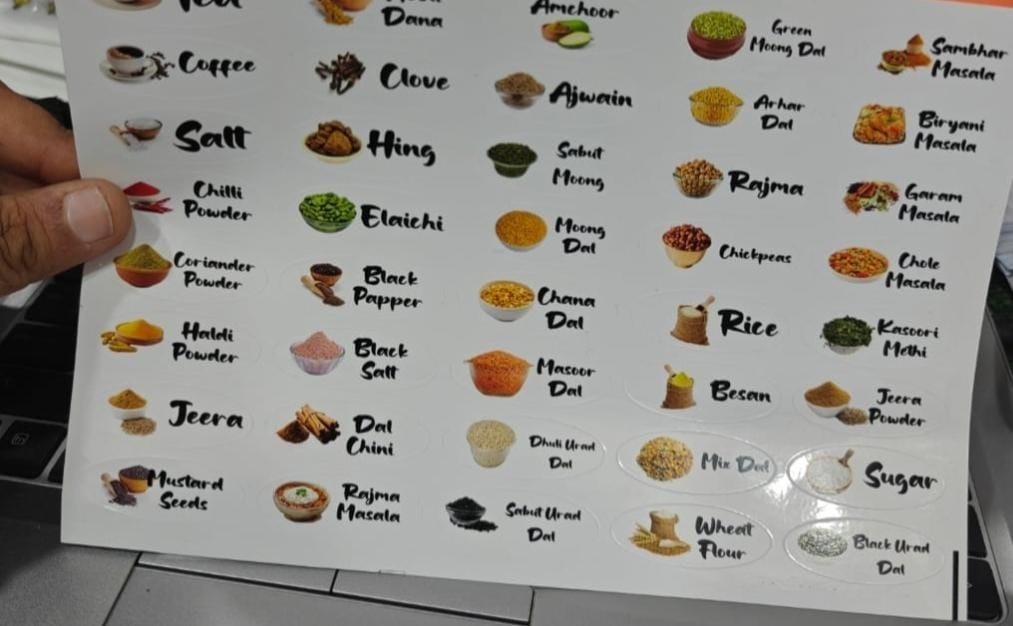 Dana
Coffee
Clove
Salt
Hing
Chilli
Powder
Elaichi
Coriander
Powder
Black
Papper
Haldi
Powder
Black
Salt
Jeera
Dal
Chini
Mustard
Seeds
Rajma
Masala
Amchoor
Ajwain
Sabut
Moong
Moong
Dal
Chana
Dal
Masoor
Dal
Dhuli Urad
Dal
Sabut Urad
Dal
Green
Moong Dal
Arhar
Dal
Rajma
Chickpeas
Rice
Besan
Mix Dal
Wheat
Flour
Sambhar
Masala
Biryani
Masala
Garam
Masala
Chole
Masala
Kasoori
Methi
Jeera
Powder
Sugar
Black Urad
Dal